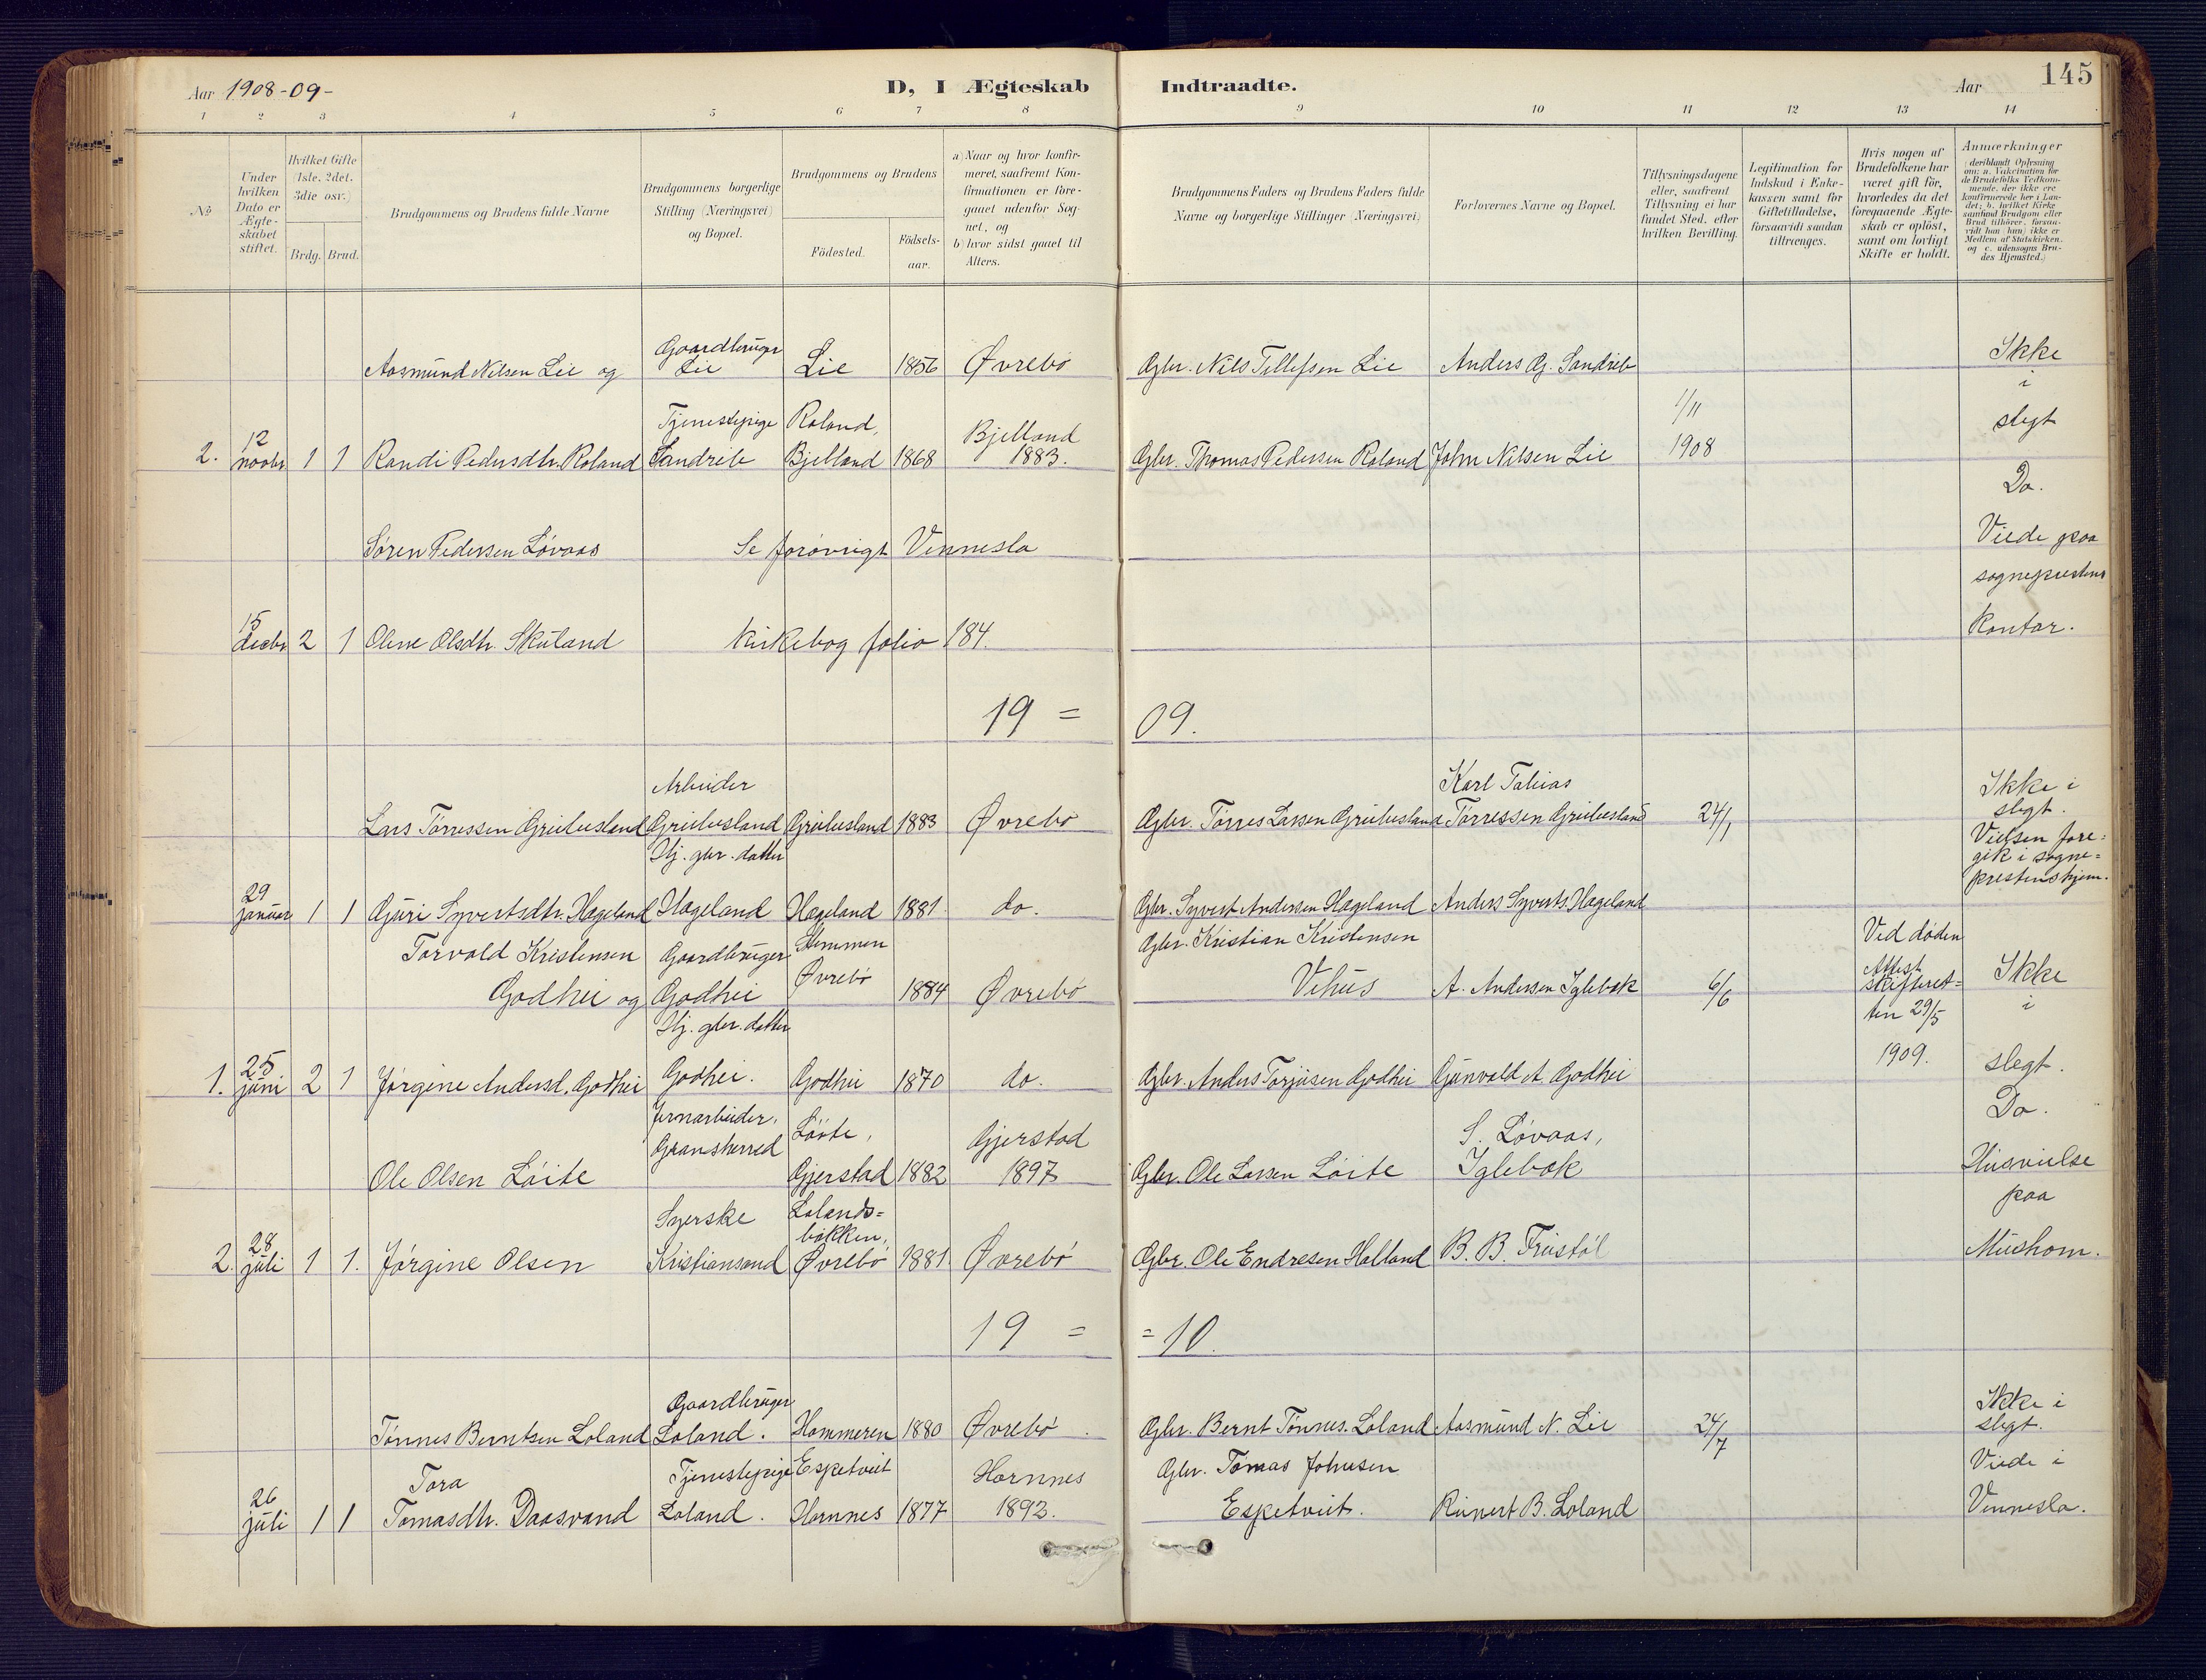 Aar 1908-09-
D, I Ægteskab
Indtraadte.
Aar
145
1 2 3 4 5 6 7 8 9 10 11 12 13 14
No
Under hvilken Dato er Ægteskabet stiftet.
Hvilket Gifte (1ste, 2det, 3die osv.)
Brdg. Brud.
Brudgommens og Brudens fulde Navne
Brudgommens borgerlige Stilling (Næringsvei) og Bopæl.
Brudgommens og Brudens
Födested.
Födsels-aar.
a) Naar og hvor konfirmeret, saafremt Konfirmationen er foregaaet udenfor Sognet, og
b) hvor sidst gaaet til Alters.
Brudgommens Faders og Brudens Faders fulde Navne og borgerlige Stillinger (Næringsvei)
Forlovernes Navne og Bopæl.
Tillysningsdagene eller, saafremt Tillysning ei har fundet Sted, efter hvilken Bevilling.
Legitimation for Indskud i Enkekassen samt for Giftetilladelse, forsaavidt saadan tiltrænges.
Hvis nogen af Brudefolkene har været gift för, hvorledes da det foregaaende Ægteskab er oplöst, samt om lovligt Skifte er holdt.
Anmærkninger
(deriblandt Oplysning om: a. Vakcination for de Brudefolks Vedkommende, der ikke ere konfirmerede her i Landet; b. hvilket Kirkesamfund Brudgom eller Brud tilhörer, forsaavidt han (hun) ikke er Medlem af Statskirken, og c. udensogns Brudes Hjemsted.)
Aasmund Nilsen Lie og
Gaardbruger
Lie
Lie 1856 Øvrebø
Gbr. Nils Tellefsen Lie
Anders G. Sandrib
Ikke
i
slegt
2. 12 novbr 1 1 Randi Pedersdtr. Roland
Tjenestepige
Sandrib
Roland,
Bjelland 1868
Bjelland
1883.
Gbr. Thomas Pedersen Roland
John Nilsen Lie
1/11
1908
Søren Pedersen Løvaas
Se forøvrigt Vennesla
Do.
Viede paa
sogneprestens
Kontor.
15 decbr 2 1 Olene Olsdtr. Skuland
Kirkebog folio 184.
19 = 09.
Arbeider
Lars Tørressen Greibesland Greibesland Greibesland 1883 Øvrebø
Gbr. Tørres Larsen Greibesland
Karl Tobias
Tørressen Greibesland
24/1
Ikke i
slegt.
Vielsen fore=
gik i sogne=
prestens hjem.
29 januar 1 1 Guri Syvertsdtr. Hægeland
Hj. gbr. datter
Hægeland Hægeland 1881. do.
Gbr. Syvert Andersen Hægeland
Anders Syverts. Hægeland
Torvald Kristensen
Godhei og
Gaardbruger
Godhei
Øvrebø 1884 Øvrebø
Gbr. Kristian Kristensen
Vehus
A. Andersen Iglebæk
6/6
Ved døden
Attest
skifteret=
ten 29/5
1909.
Ikke
i
slegt.
1. 25 juni 2 1 Jørgine Andersd. Godhei
Hj. gbr. datter
Godhei. Godhei 1870 do.
Gbr. Anders Torjusen Godhei
Gunvald A. Godhei
Ole Olsen Løite
Jernarbeider,
Gransherred
Løite,
Gjerstad 1882
Gjerstad
1897
Gbr. Ole Larsen Løite
S. Løvaas,
Iglebæk
Do.
Husvielse
paa
Mushom.
2. 28 juli 1 1. Jørgine Olsen
Syerske
Kristiansand
Lolands=
bakken,
Øvrebø 1881 Øvrebø
Gbr. Ole Endresen Halland
B. B. Frustøl
19 = =10.
Tønnes Berntsen Loland
Gaardbruger
Loland. Hommeren 1880 Øvrebø.
Gbr. Bernt Tønnes. Loland
Aasmund N. Lie
24/7
Ikke i
slegt.
Viede i
Vennesla.
26 juli 1 1
Tora
Tomasdtr. Daasvand
Tjenestepige
Loland.
Espetveit
Hornnes 1877
Hornnes
1892.
Gbr. Tomas Johnsen
Espetveit.
Runert B. Loland